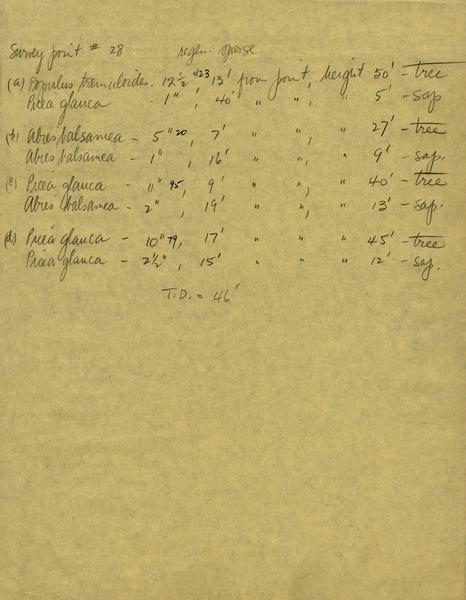 Survey point # 28 regen. sparse
(a) Populus tremuloides. 12½" 123 13' from point, height 50' - tree
Picea glauca 1", 40' " " , " 5' - sap
(b) Abies balsamea - 5" 20, 7' " " , " 27' - tree
Abies balsamea - 1" , 16' " " , " 9' - sap.
(c) Picea glauca - 11" 95, 9' " " , " 40' - tree
Abies balsamea - 2" , 19' " " , " 13' - sap.
(d) Picea glauca - 10" 79, 17' " " " 45' - tree
Picea glauca - 2½" , 15' " " " 12' - sap.
T.D. = 46'